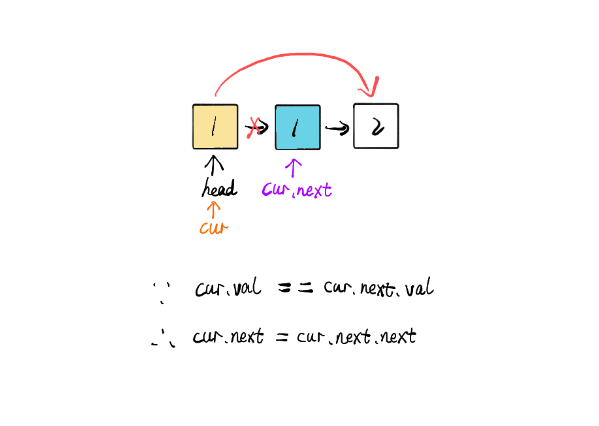 1 1 2
head cur.next
cur
∵ cur.val == cur.next.val
∴ cur.next = cur.next.next